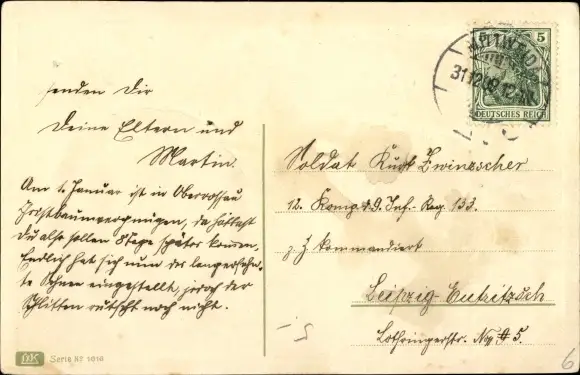 senden Dir
Deine Eltern und
Martin.
Am 1. Januar ist in Oberossau
Christbaumvergnügen, da hättest
Du also sollen 8 Tage später kommen.
Endlich hat sich nun der langersehn-
te Schnee eingestellt, jedoch der
Schlitten rutscht noch nicht.
MK Serie Nr. 1010
5
5
DEUTSCHES REICH
MITTWEIDA
31.12.09.12
Soldat Kurt Zwinzscher
12. Komp. d. 9. Inf.-Reg. 133.
z. Z. kommandiert
Leipzig-Eutritzsch
Lothringerstr. No 5.
6